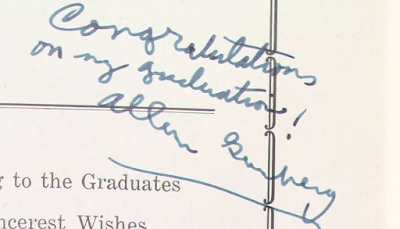 Congratulations
on my graduation!
Allen Ginsberg
to the Graduates
ncerest Wishes